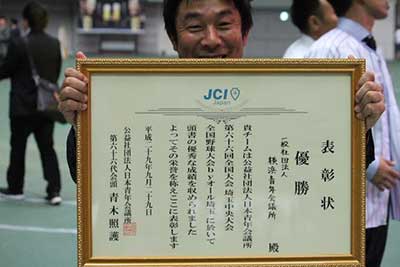 JCI
Japan
表彰状
優勝
一般社団法人
横浜青年会議所 殿
貴チームは公益社団法人日本青年会議所
第六十六回全国大会 埼玉中央大会
全国野球大会byオール埼玉に於いて
頭書の優秀な成績を収められました
よってその栄誉を称えここに表彰します
平成二十九年九月二十九日
公益社団法人日本青年会議所
第六十六代会頭 青木照護